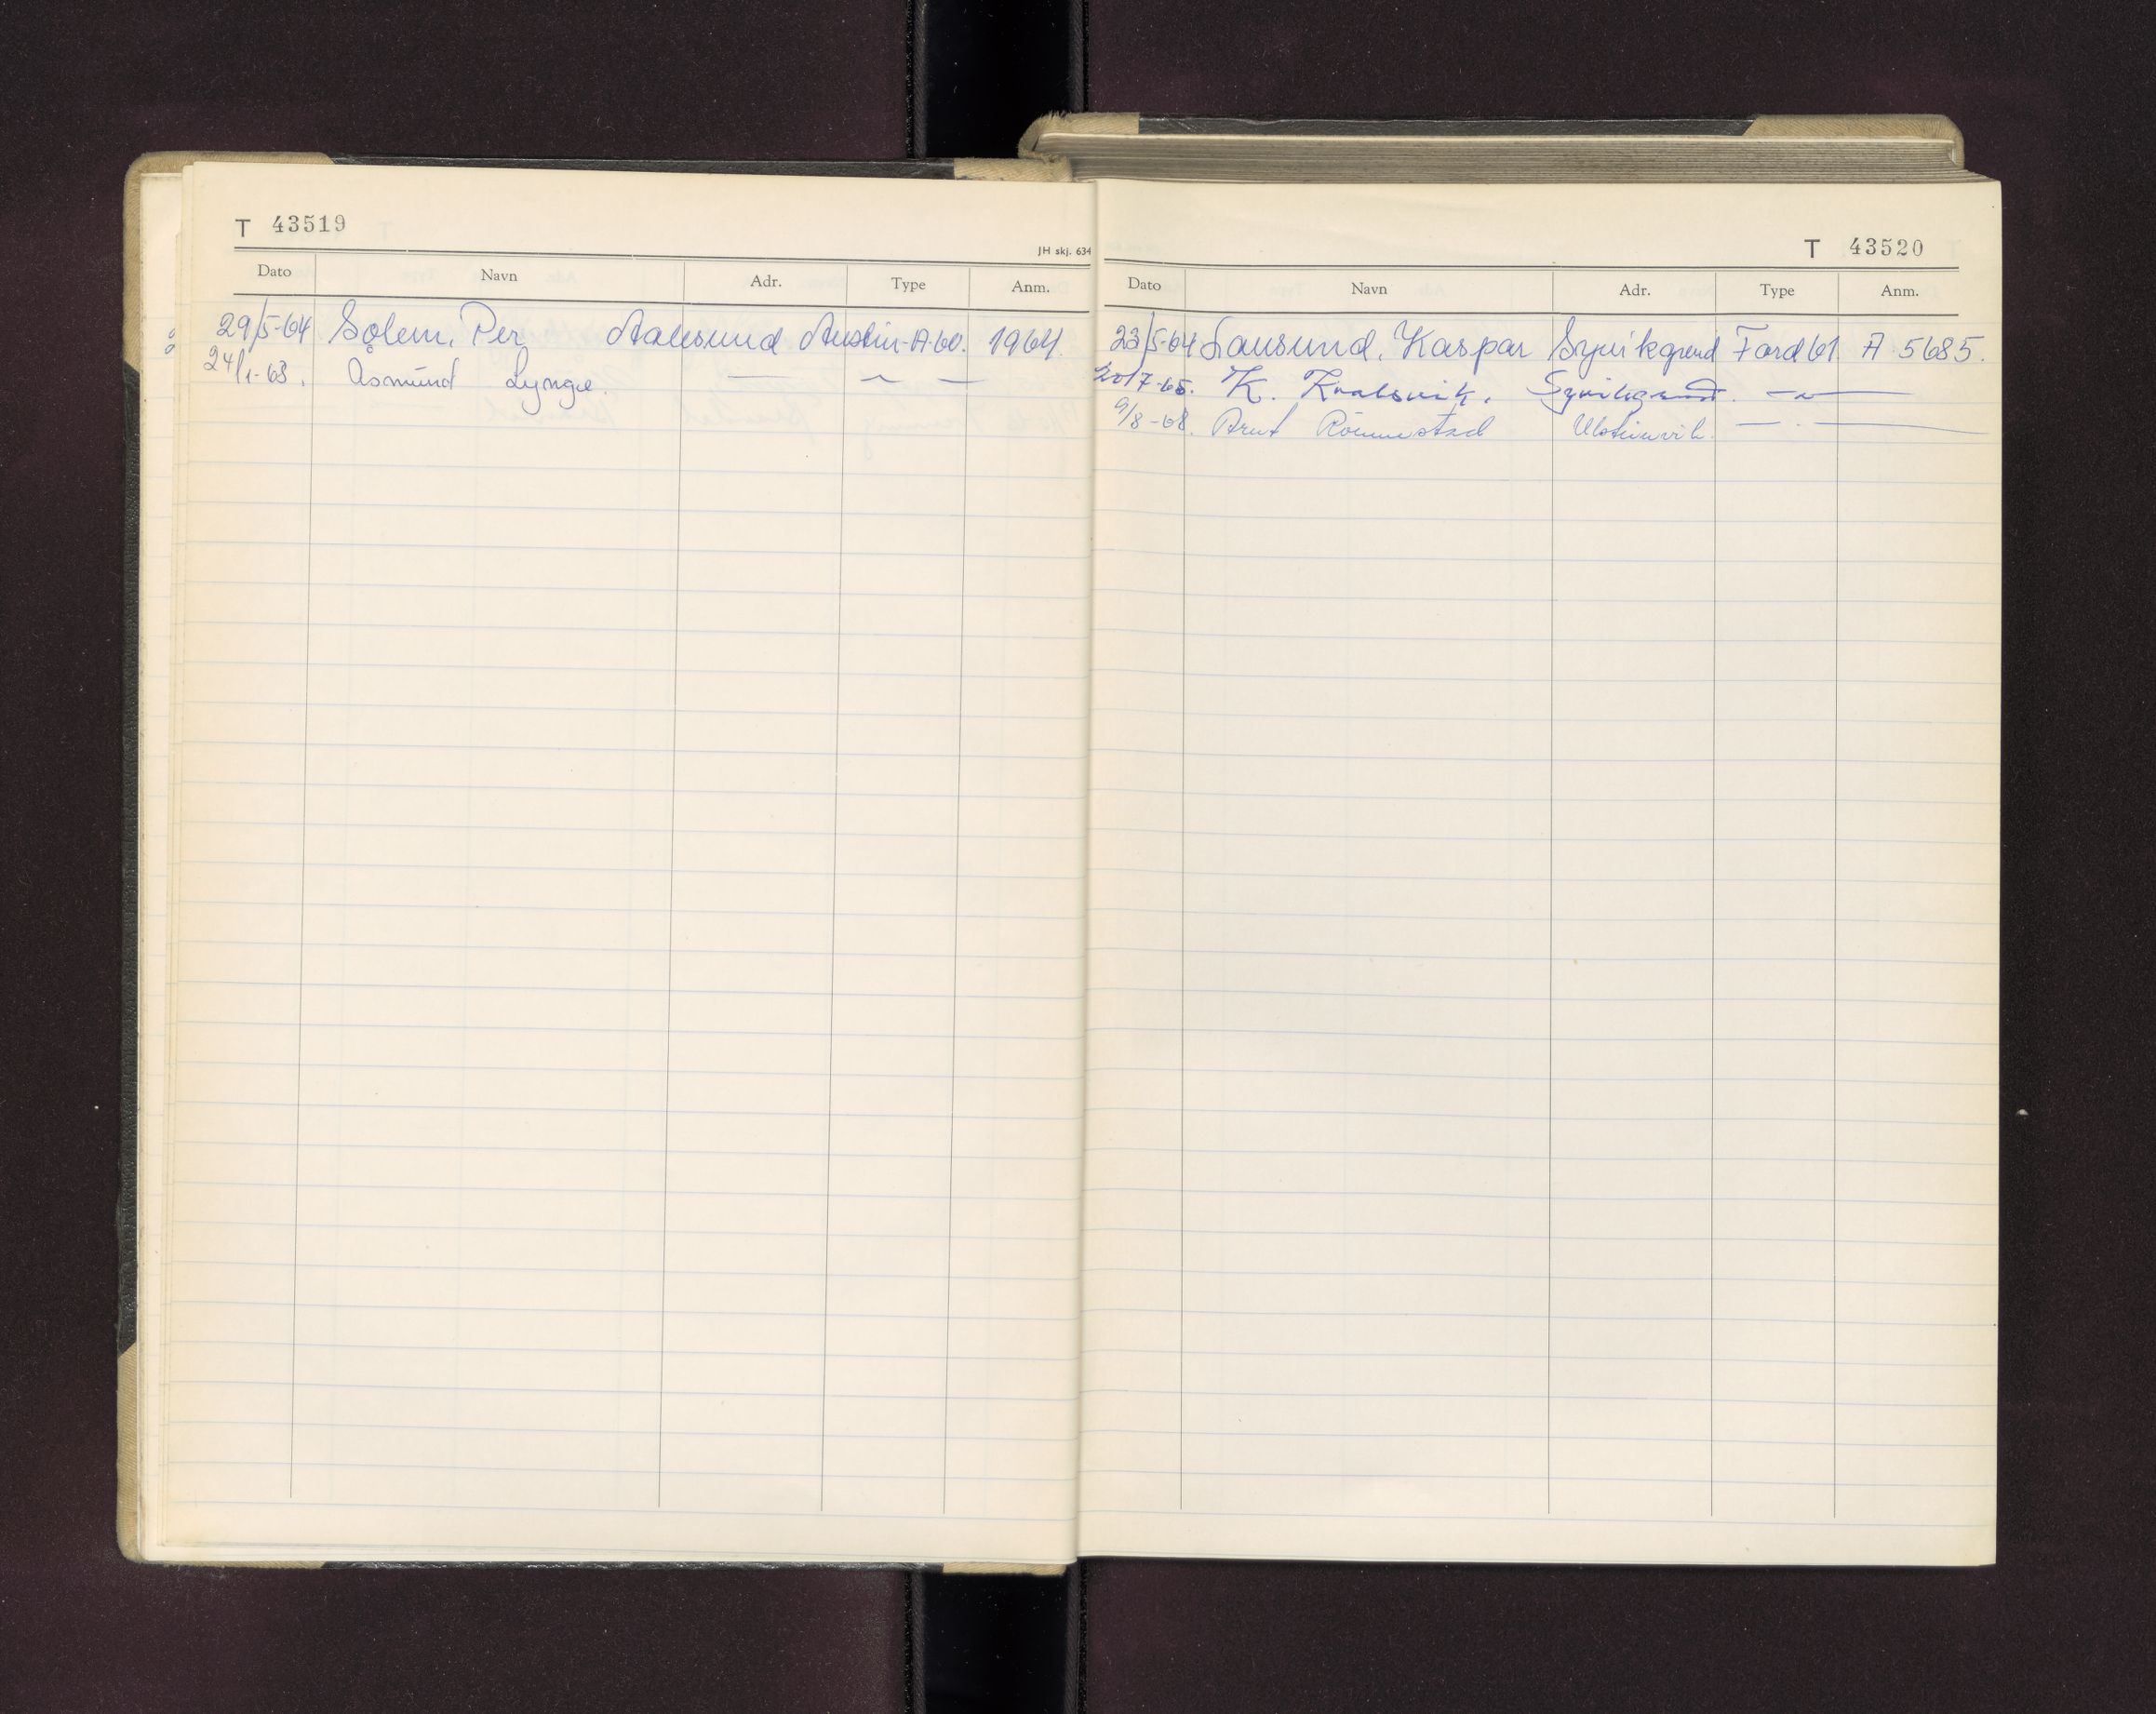 T 43519
JH skj. 634
Dato Navn Adr. Type Anm.
29/5-64 Solem, Per Aalesund Austin-A-60. 1964.
24/1-68. Åsmund Lynge. — 〃 —
T 43520
Dato Navn Adr. Type Anm.
23/5-64 Lausund, Kaspar Syvikgrend Ford 61. A 5685.
20/7-65. K. Kvalsvik. Syvikgrend. — 〃 —
9/8-68. Arnt Ulsteinvik. — 〃 —